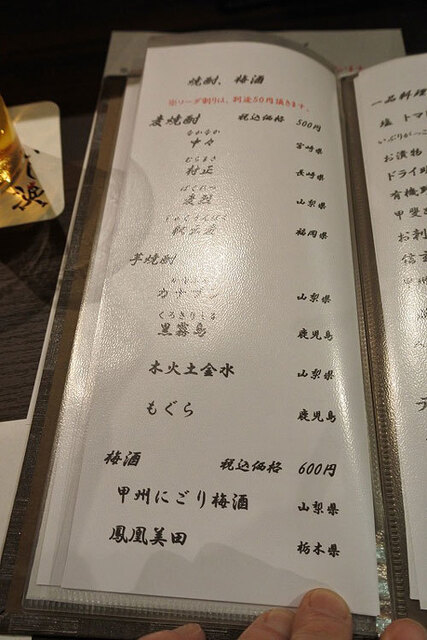 焼酎、梅酒
※ソーダ割りは、別途50円頂きます。
麦焼酎 税込価格 500円
なかなか
中々 宮崎県
むらまさ
村正 長崎県
ばくれつ
麦烈 山梨県
福岡県
芋焼酎
カナマン 山梨県
くろきりしま
黒霧島 鹿児島
木火土金水 山梨県
もぐら 鹿児島
梅酒 税込価格 600円
甲州にごり梅酒 山梨県
鳳凰美田 栃木県
一品料理
塩 トマ
いぶりがっこ
お漬物
ドライ
有機
甲斐
お刺
信玄